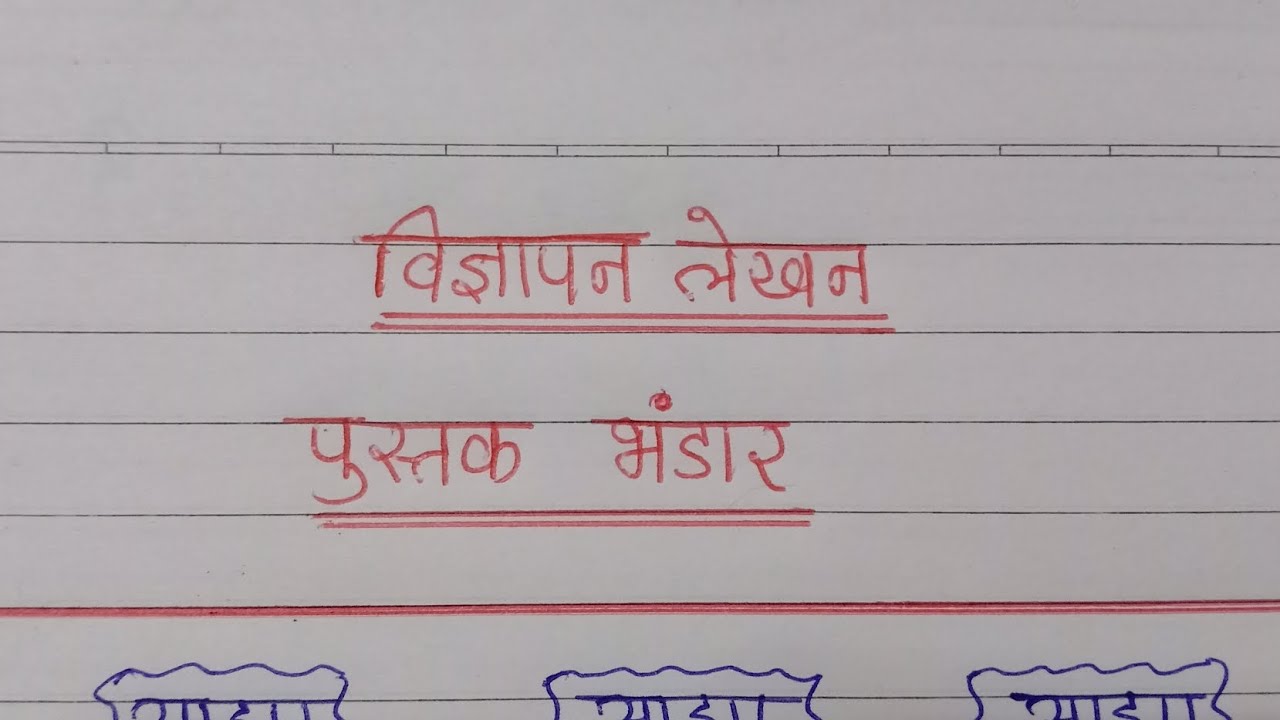 विज्ञापन लेखन
पुस्तक भंडार